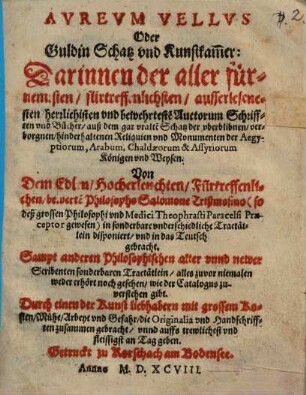 AVREVM VELLVS
Oder
Guldin Schatz vnd Kunstkam̃er:
Darinnen der aller für-
nem:sten / fürtreff.nlichsten / ausserlesene-
sten herrlichisten vnd bewehrtesten Auctorum Schriff-
ten vnd Bücher / auß dem gar vralten Schatz der vberblibnen / ver-
borgnen / hinderhaltenen Reliquien vnd Monumenten der Aegy-
ptiorum, Arabum, Chaldæorum & Assyriorum
Königen vnd Weysen.
Von
Dem Edlen / Hocherleuchten / Fürtreffenli-
chen / bewerten Philosopho Salomone Trißmosino (so
deß grossen Philosophi vnd Medici Theophrasti Paracelsi Præ-
ceptor gewesen) in sonderbare vnderschiedliche Tractät-
lein disponiert / vnd in das Teutsch
gebracht.
Sampt anderen Philosophischen alter vnnd newer
Scribenten sonderbaren Tractätlein / alles zuvor niemalen
weder erhört noch gesehen / wie der Catalogus zu-
verstehen gibt.
Durch einen der Kunst liebhabern mit grossem Ko-
sten / Mühe / Arbeyt vnd Gefahr / die Originalia vnd Handschriff-
ten zusammen gebracht / vnnd auffs trewlichest vnd
fleissigst an Tag geben.
Getruckt zu Rorschach am Bodensee.
Anno M. D. XCVIII.